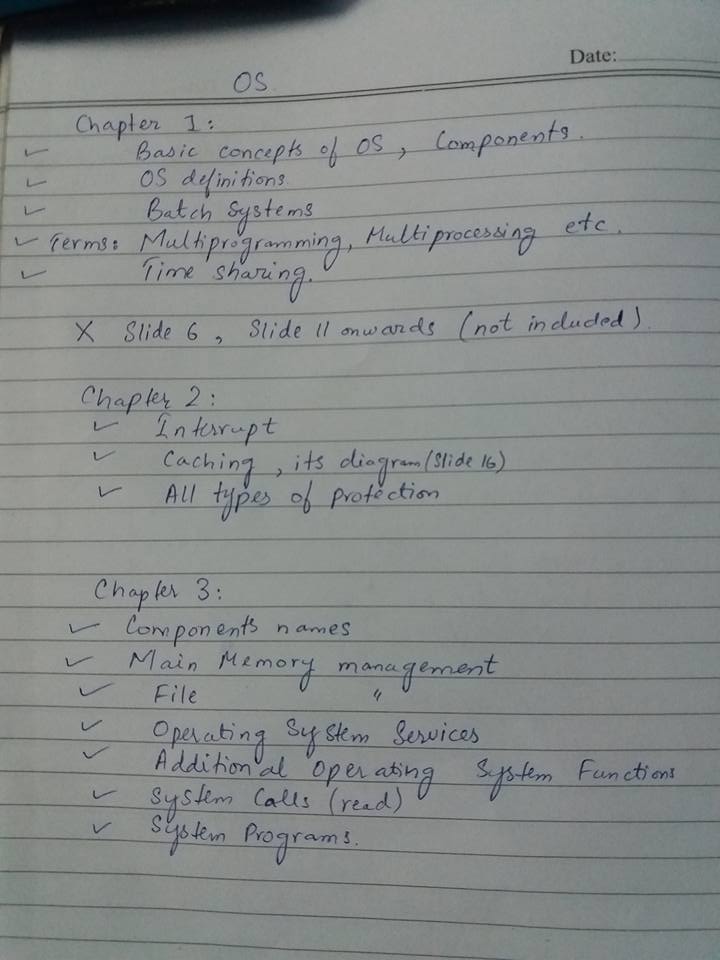 Date:
OS
Chapter 1:
✓ Basic concepts of OS, Components.
✓ OS definitions
✓ Batch Systems
✓ Terms: Multiprogramming, Multiprocessing etc.
✓ Time sharing.
X Slide 6, Slide 11 onwards (not included).
Chapter 2:
✓ Interrupt
✓ Caching, its diagram (Slide 16)
✓ All types of protection
Chapter 3:
✓ Components names
✓ Main Memory management
✓ File "
✓ Operating System Services
✓ Additional Operating System Functions
✓ System Calls (read)
✓ System Programs.